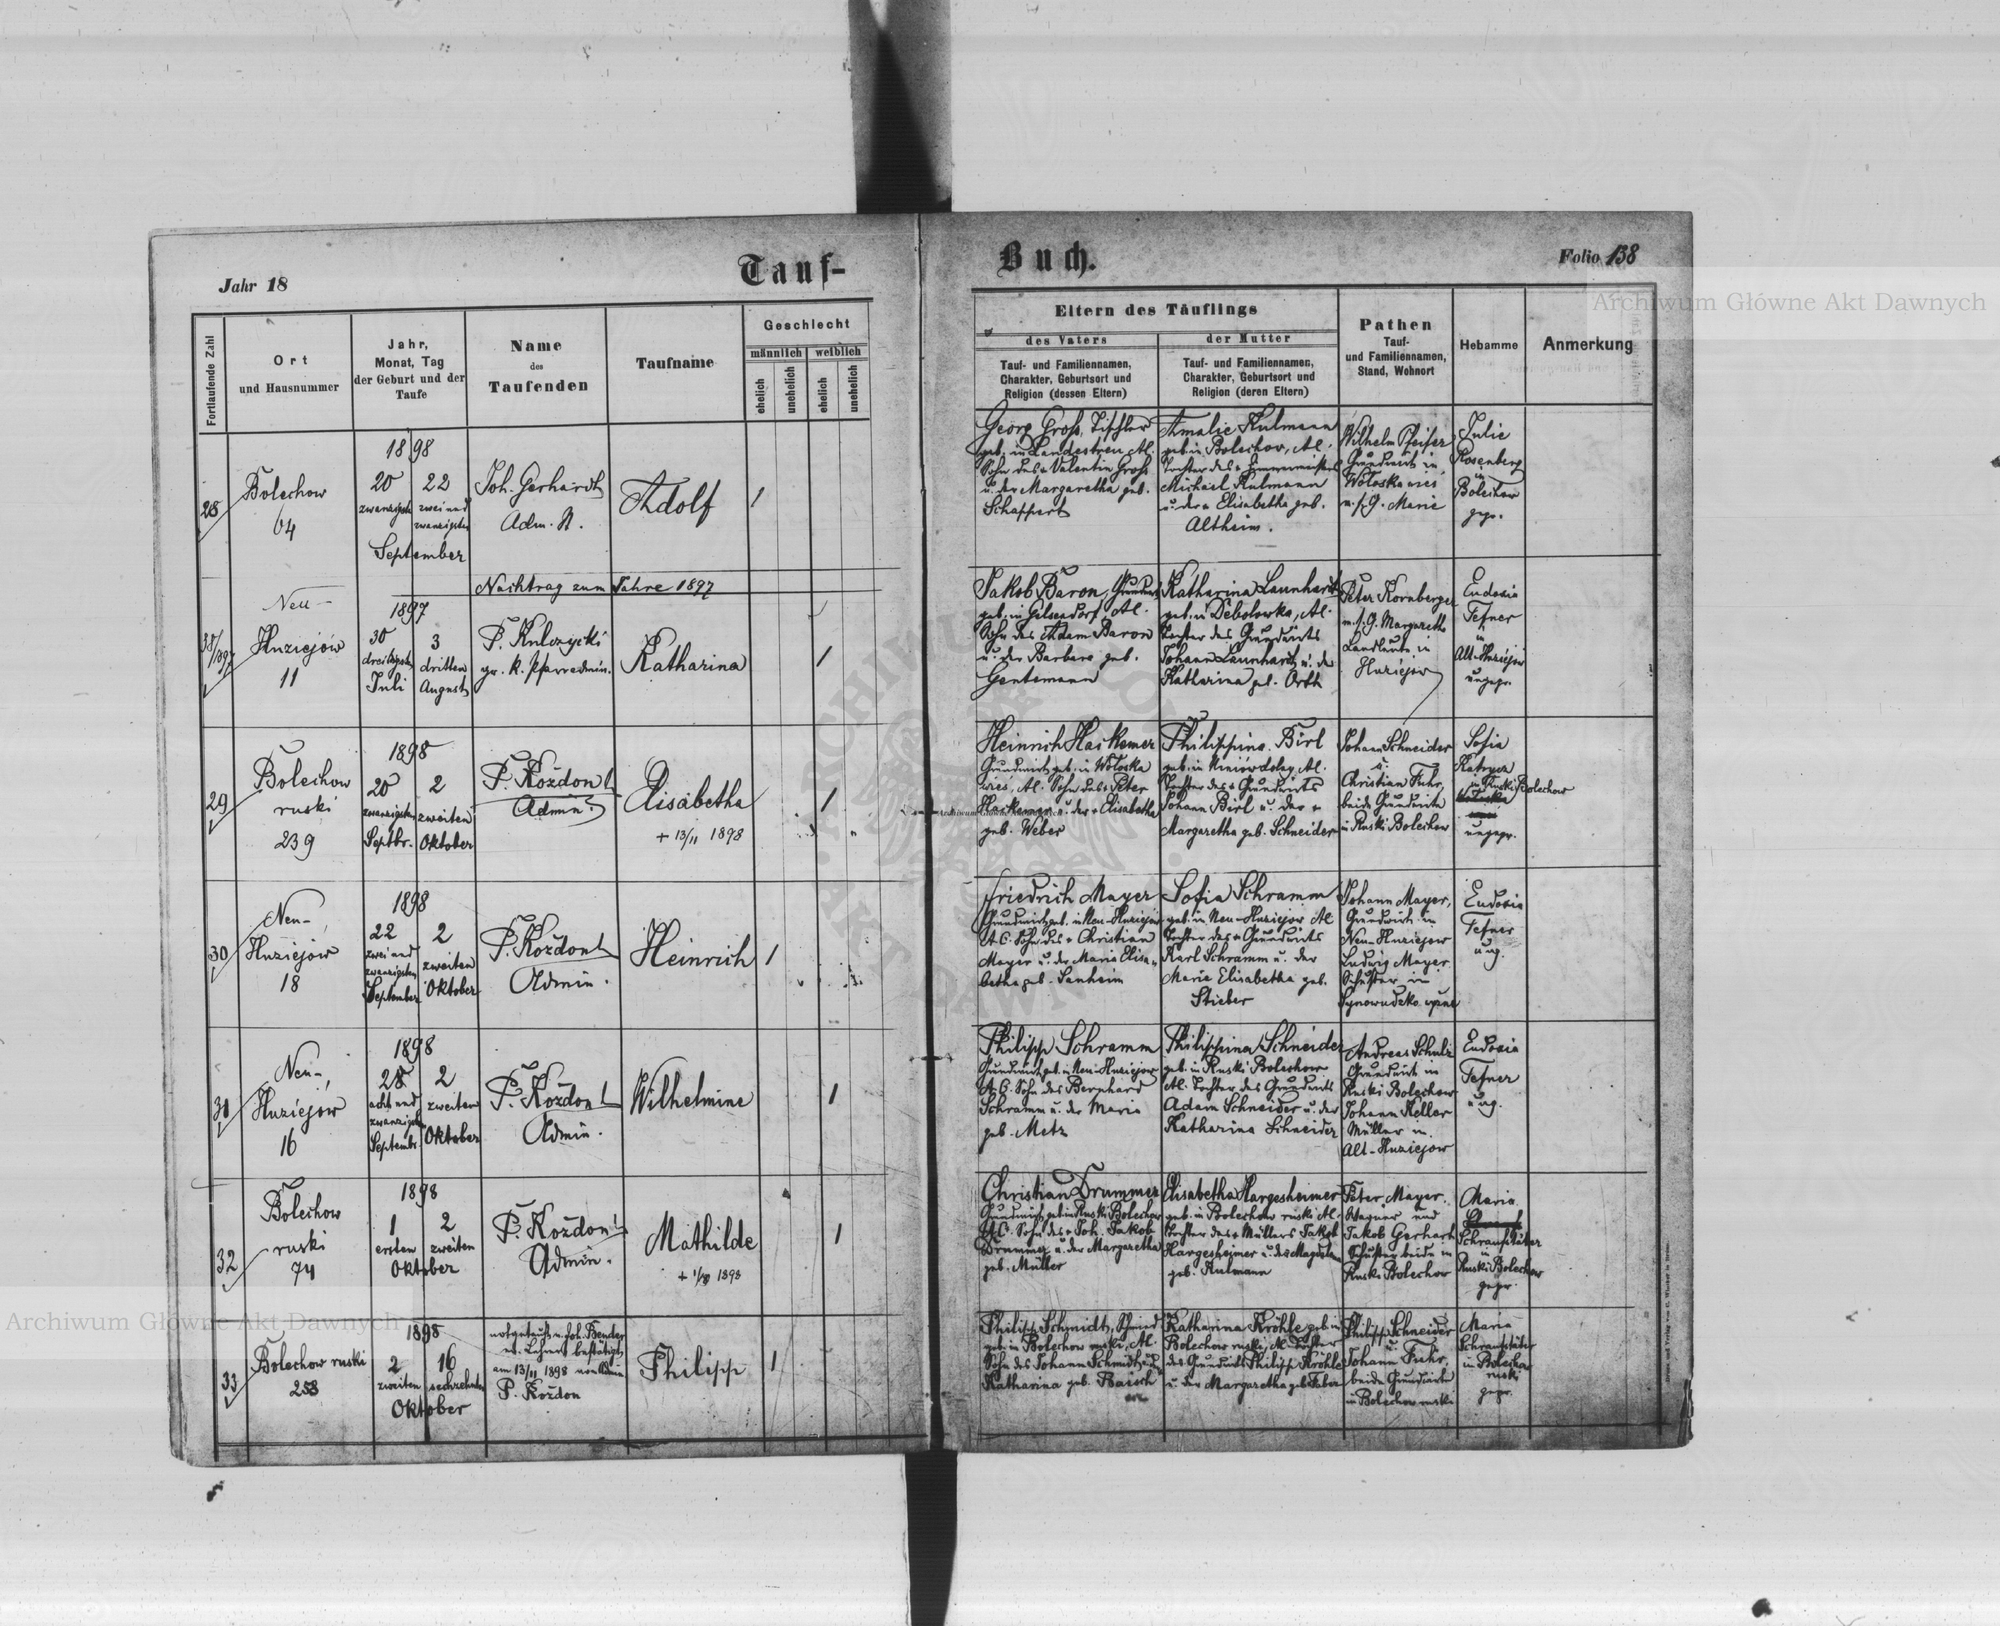 Jahr 18
Tauf-
Buch.
Folio 138
Archiwum Główne Akt Dawnych
Fortlaufende Zahl
Ort
und Hausnummer
Jahr,
Monat, Tag
der Geburt und der
Taufe
Name
des
Taufenden
Taufname
Geschlecht
männlich
weiblich
ehelich
unehelich
ehelich
unehelich
Eltern des Täuflings
des Vaters
Tauf- und Familiennamen,
Charakter, Geburtsort und
Religion (dessen Eltern)
der Mutter
Tauf- und Familiennamen,
Charakter, Geburtsort und
Religion (deren Eltern)
Pathen
Tauf-
und Familiennamen,
Stand, Wohnort
Hebamme
Anmerkung
28
Bolechow
64
1898
20 22
zwanzigsten zwei und
zwanzigsten
September
Joh. Gerhardt
Adm. N.
Adolf
1
Georg Gross, Tischler
geb. in Landestreu, Al.
Sohn des + Valentin Gross
u. der Margaretha geb.
Schappert
Amalie Kulmann
geb. in Bolechow, Al.
Tochter des + Zimmermeisters
Michael Kulmann
u. der + Elisabetha geb.
Altheim.
Wilhelm Pfeifer
Grundwirt in
Wołoska wieś
m. s. G. Marie
Julie
Rosenberg
in
Bolechow
gepr.
Nachtrag zum Jahre 1897
38/1897
Neu-
Huziejów
11
1897
30 3
dreissigsten dritten
Juli August
P. Kulczycki
gr. k. Pfarradmin.
Katharina
1
Jakob Baron, Grundwirt
geb. in Gelsendorf, Al.
Sohn des Adam Baron
u. der Barbara geb.
Gentemann
Katharina Launhardt
geb. in Debolowka, Al.
Tochter des Grundwirts
Johann Launhardt u. der
Katharina geb. Orth
Peter Kornberger
m. s. G. Margareth
Landleute in
Huziejow
Eudosia
Tefner
in
Alt-Huziejow
ungepr.
29
Bolechow
ruski
239
1898
20 2
zwanzigsten zweiten
Septbr. Oktober
P. Kozdon
Admin.
Elisabetha
+ 13/11 1898
1
Heinrich Hackemer
Grundwirt geb. in Wołoska
wieś, Al. Sohn des + Peter
Hackemer u. der + Elisabetha
geb. Weber
Philippina Birl
geb. in Kniówdolny, Al.
Tochter des + Grundwirts
Johann Birl u. der +
Margaretha geb. Schneider
Johann Schneider
u.
Christian Fuhr,
beide Grundwirte
in Ruski Bolechow
Sofia
Katryca
in Ruski Bolechow
ungepr.
30
Neu-
Huziejow
18
1898
22 2
zwei und
zwanzigsten zweiten
September Oktober
P. Kozdon
Admin.
Heinrich
1
Friedrich Mayer
Grundwirt geb. in Neu-Huziejow
A.C. Sohn des + Christian
Mayer u. der Maria Elisa-
betha geb. Sanheim
Sofia Schramm
geb. in Neu-Huziejow Al
Tochter des + Grundwirts
Karl Schramm u. der
Maria Elisabetha geb.
Stieber
Johann Mayer,
Grundwirt in
Neu-Huziejow
Ludwig Mayer
Schuster in
Synowudzko wyżne
Eudosia
Tefner
ung.
31
Neu-
Huziejow
16
1898
28 2
acht und
zwanzigsten zweiten
Septembr. Oktober
P. Kozdon
Admin.
Wilhelmine
1
Philipp Schramm
Grundwirt geb. in Neu-Huziejow
A.C. Sohn des Bernhard
Schramm u. der Maria
geb. Metz
Philippina Schneider
geb. in Ruski Bolechow
Al. Tochter des Grundwirts
Adam Schneider u. der
Katharina Schneider
Andreas Schulz
Grundwirt in
Ruski Bolechow
Johann Keller
Müller in
Alt-Huziejow
Eudosia
Tefner
ung.
32
Bolechow
ruski
74
1898
1 2
ersten zweiten
Oktober
P. Kozdon
Admin.
Mathilde
1
Christian Drummer
Grundwirt geb. in Ruski Bolechow
A.C. Sohn des + Joh. Jakob
Drummer u. der Margaretha
geb. Müller
Elisabetha Hargesheimer
geb. in Bolechow ruski Al.
Tochter des + Müllers Jakob
Hargesheimer u. der Magdalena
geb. Kulmann
Peter Mayer,
Wagner und
Jakob Gerhart
Schuster beide in
Ruski Bolechow
Maria
Schranfstäter
in
Ruski Bolechow
gepr.
33
Bolechow ruski
258
1898
2 16
zweiten sechzehnten
Oktober
notgetauft v. Joh. Bender
ev. Lehrer bestätigt
am 13/11 1898 von Admin
P. Kozdon
Philipp
1
Philipp Schmidt, Schmied
geb. in Bolechow ruski, Al.
Sohn des Johann Schmidt u. der
Katharina geb. Baisch
Katharina Kröhle geb. in
Bolechow ruski, Al. Tochter
des Grundwirts Philipp Kröhle
u. der Margaretha geb. Faber
Philipp Schneider
u.
Johann Fuhr,
beide Grundwirte
in Bolechow ruski
Maria
Schranfstäter
in Bolechow
ruski
gepr.
Archiwum Główne Akt Dawnych